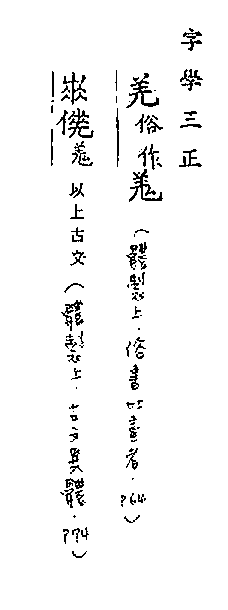 字學三正
羌俗作羗（體製上．俗書加畫者．P64）
羗以上古文（體製上．古文異體．P74）